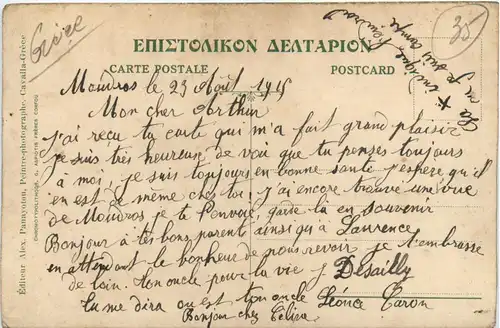 Grèce
35
ΕΠΙΣΤΟΛΙΚΟΝ ΔΕΛΤΑΡΙΟΝ
CARTE POSTALE
POSTCARD
Moudros le 23 Août 1915
Mon cher Arthur
J'ai reçu ta carte qui m'a fait grand plaisir
je suis très heureux de voir que tu penses toujours
à moi, je suis toujours en bonne santé j'espère qu'il
en est de même chez toi, j'ai encore trouvé une vue
de Moudros je te l'envoie, garde la en souvenir
Bonjour à tes bons parents ainsi qu'à Laurence
en attendant le bonheur de vous revoir je t'embrasse
de loin. Ton oncle pour la vie J. Desailly
tu me dira ou est ton oncle Léonce Caron
Bonjour chez Célina
ou je suis campé
Editeur Alex. Panayotou, Peintre-photographe, Cavalla-Grèce